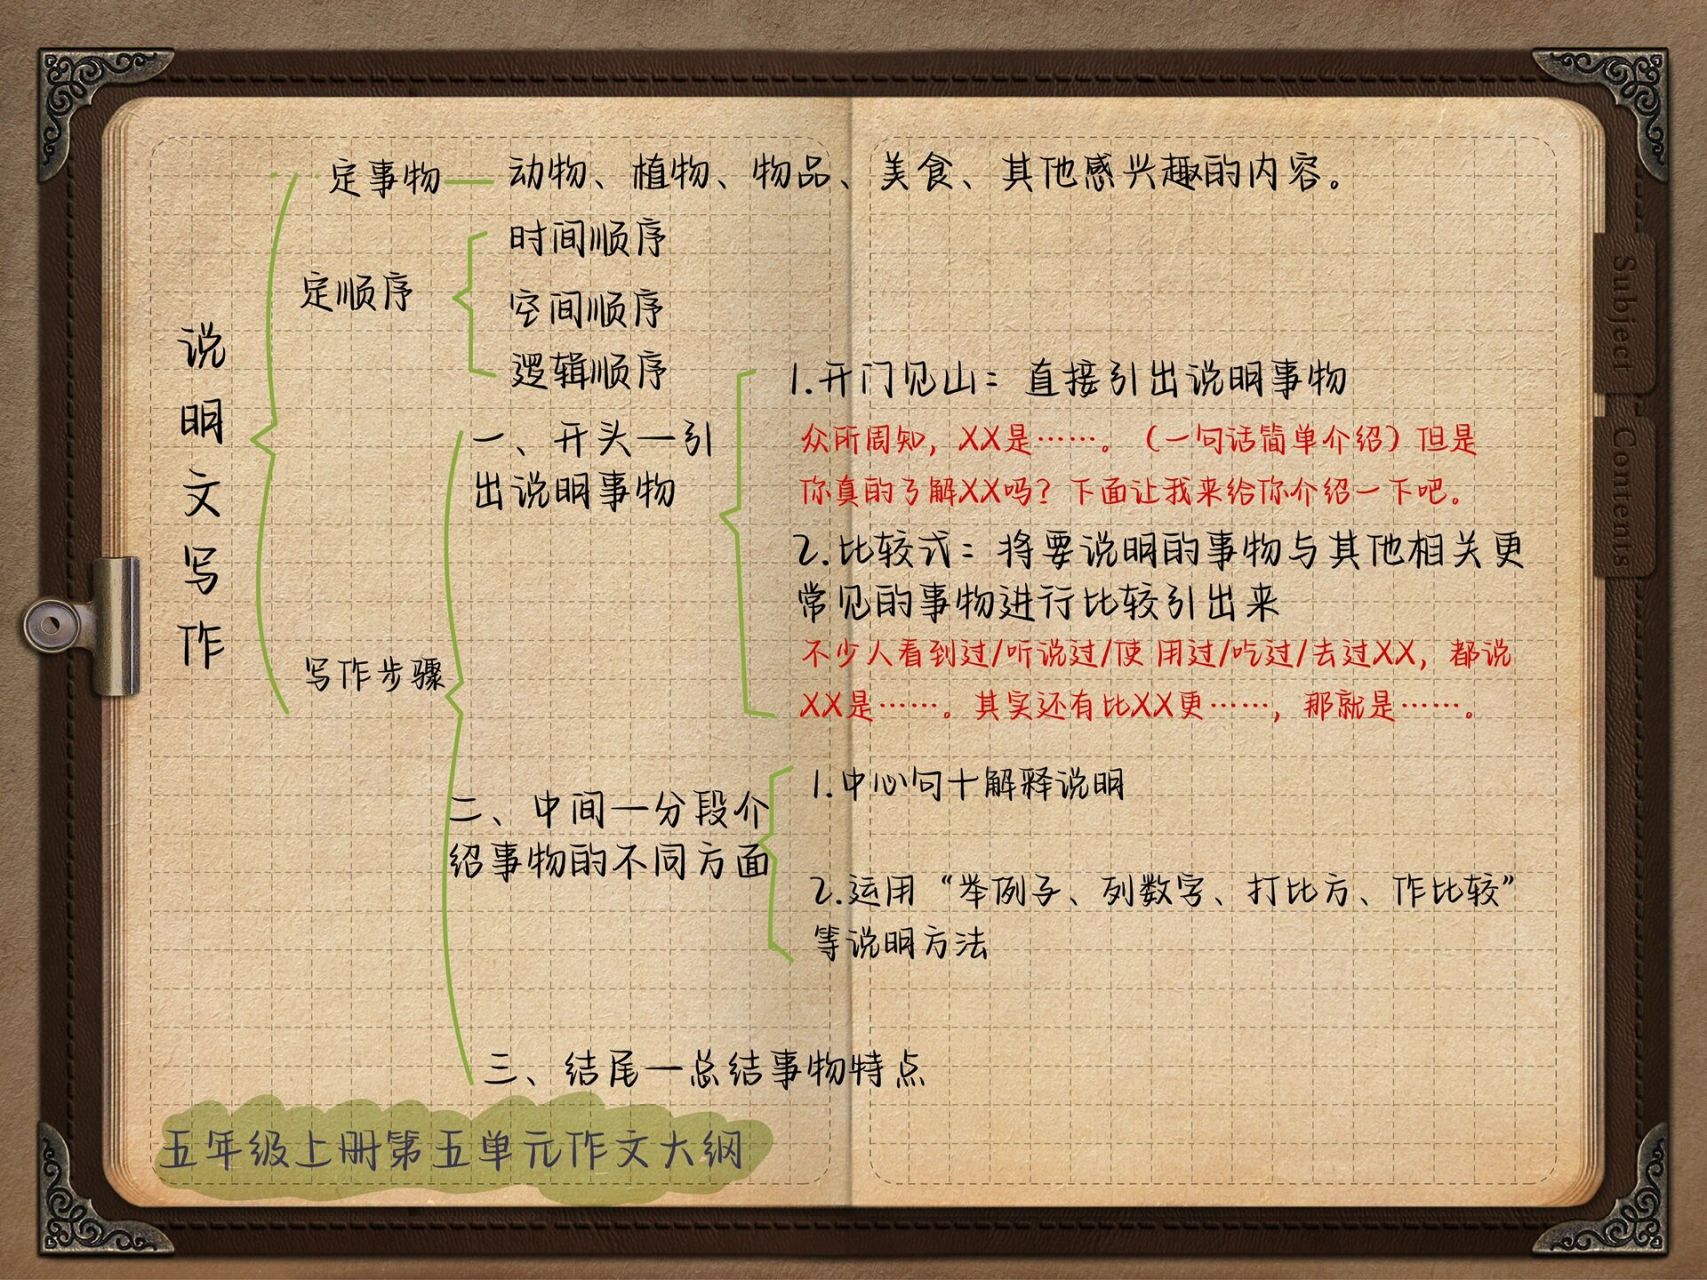 定事物 动物、植物、物品、美食、其他感兴趣的内容。
定顺序
时间顺序
空间顺序
逻辑顺序
说明文写作
写作步骤
一、开头一引
出说明事物
1.开门见山：直接引出说明事物
众所周知，XX是……。（一句话简单介绍）但是
你真的了解XX吗？下面让我来给你介绍一下吧。
2.比较式：将要说明的事物与其他相关更
常见的事物进行比较引出来
不少人看到过/听说过/使 用过/吃过/去过XX，都说
XX是……。其实还有比XX更……，那就是……。
二、中间一分段介
绍事物的不同方面
1.中心句十解释说明
2.运用“举例子、列数字、打比方、作比较”
等说明方法
三、结尾一总结事物特点
五年级上册第五单元作文大纲
Subject
Contents